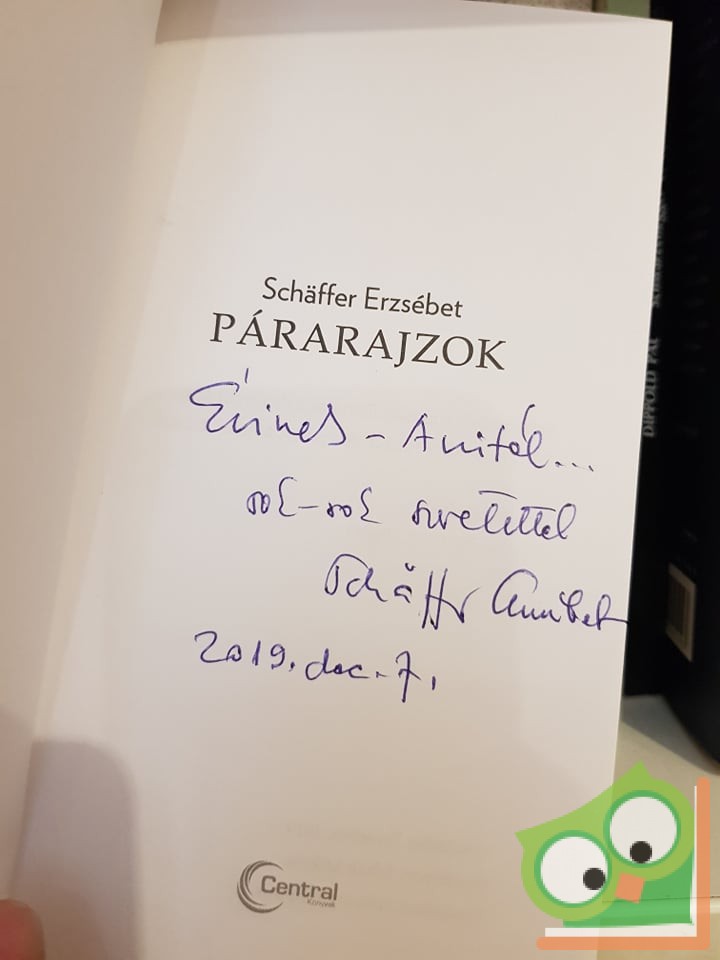 Schäffer Erzsébet
PÁRARAJZOK
Évinek – Anitól...
sok-sok szeretettel
Schäffer Erzsébet
2019. dec. 7.
Central
Könyvek
DIPPOLD PÁL